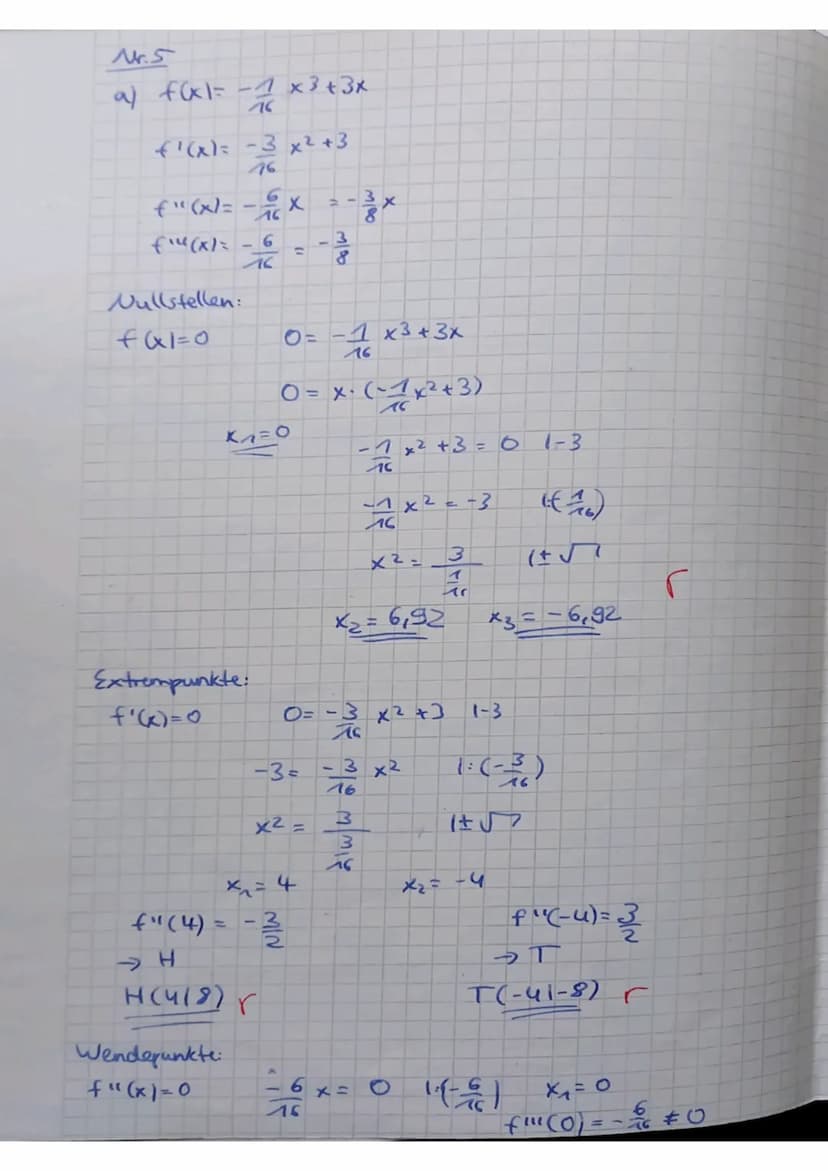 Nr. 5
a) f(x) = -1/16 x³ + 3x
f'(x) = -3/16 x² + 3
f''(x) = -6/16 x = -3/8 x
f'''(x) = -6/16 = -3/8
Nullstellen:
f(x) = 0 0 = -1/16 x³ + 3x
0 = x · (-1/16 x² + 3)
x₁ = 0 -1/16 x² + 3 = 0 | -3
-1/16 x² = -3 | :(-1/16)
x² = 3/(1/16) | ±√
r
x₂ = 6,92 x₃ = -6,92
Extrempunkte:
f'(x) = 0 0 = -3/16 x² + 3 | -3
-3 = -3/16 x² | :(-3/16)
x² = 3/(3/16) | ±√
x₁ = 4 x₂ = -4
f''(4) = -3/2 f''(-4) = 3/2
→ H → T
H(4|8) r T(-4|-8) r
Wendepunkte:
f''(x) = 0 -6/16 x = 0 | :(-6/16) x₁ = 0
f'''(0) = -6/16 ≠ 0